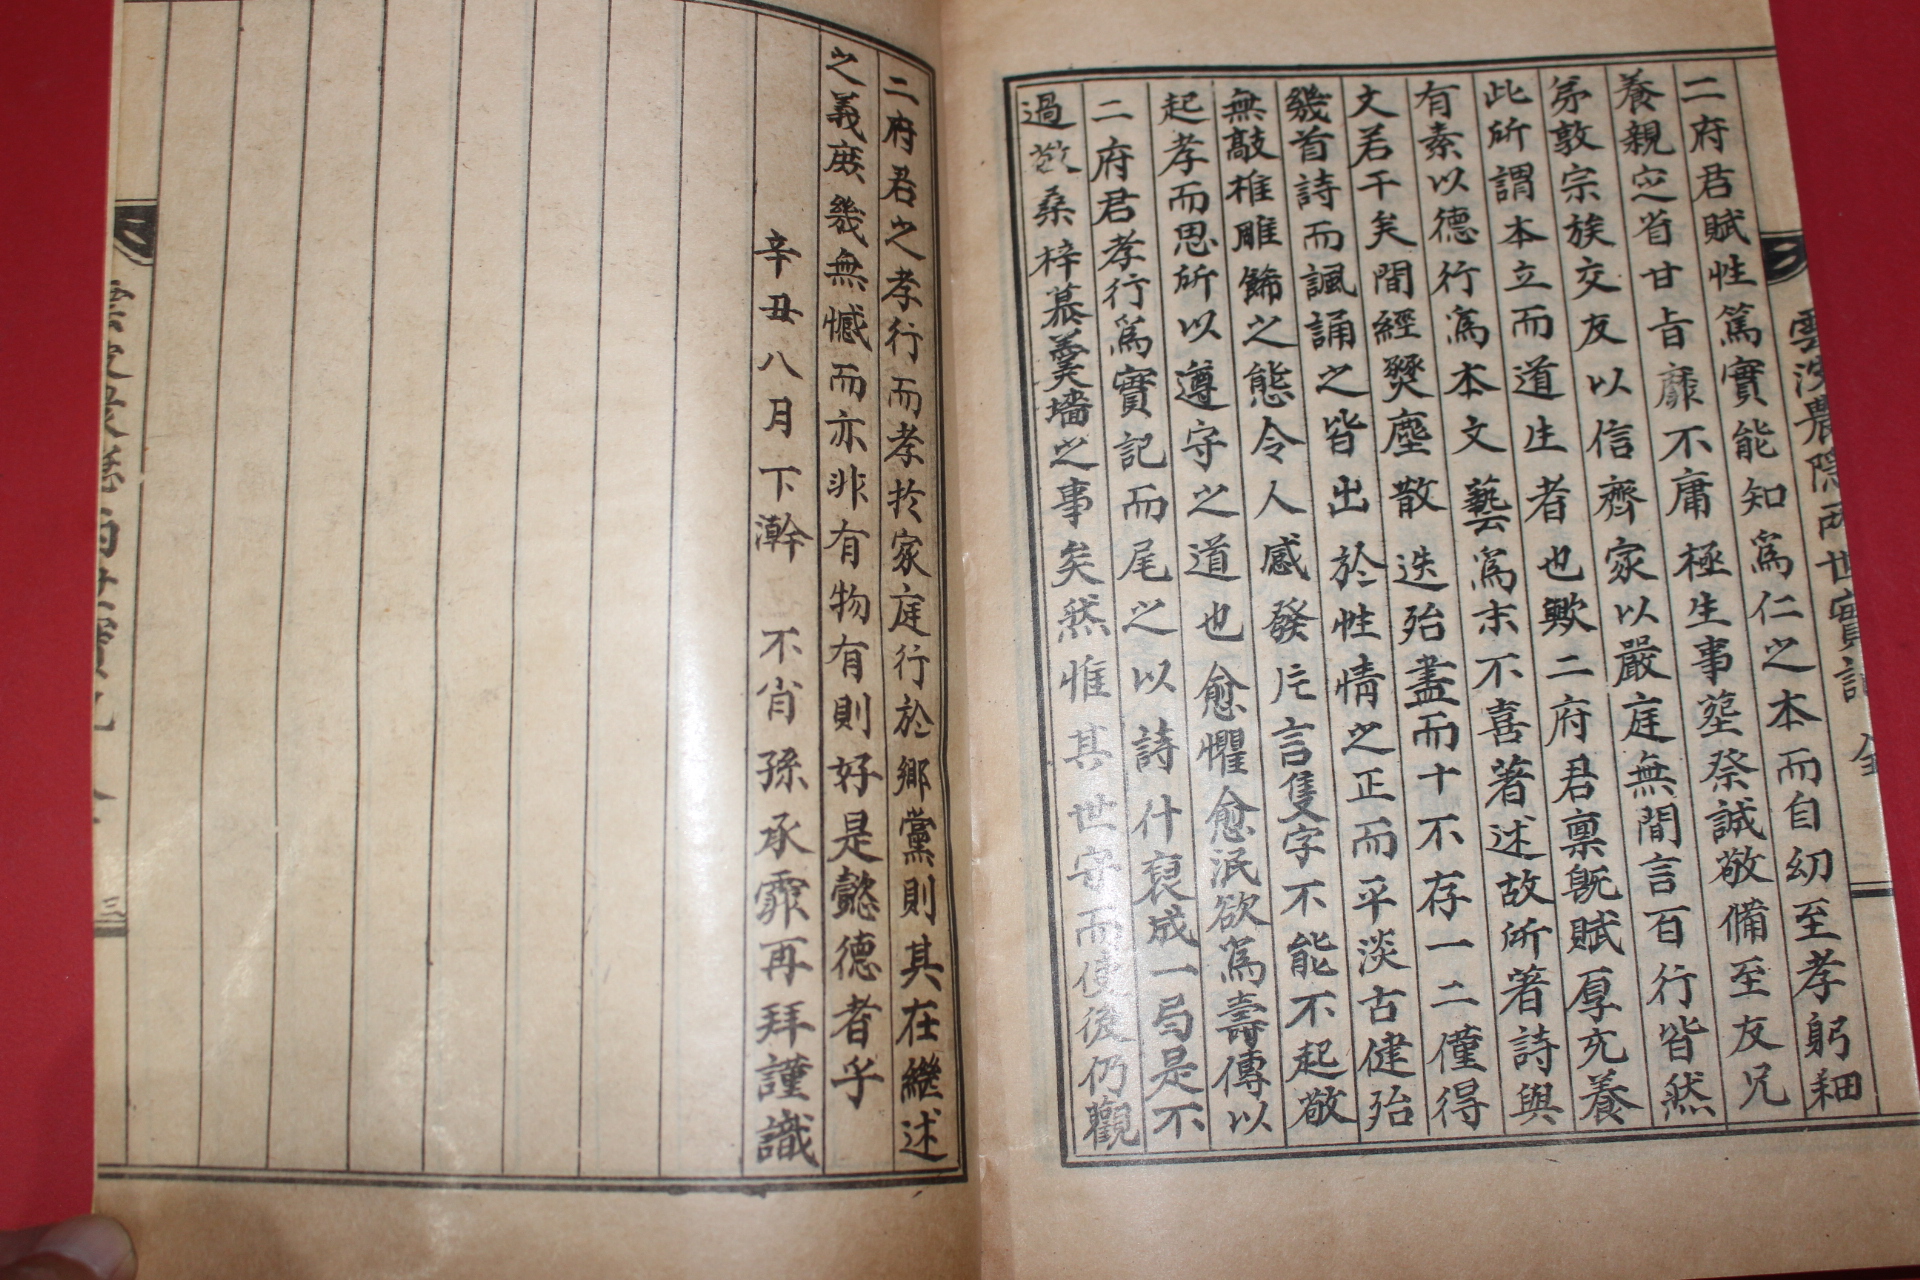 二府君賦性篤實能知爲仁之本而自幼至孝躬耕
養親定省甘旨靡不庸極生事塟祭誠敬備至友兄
弟敦宗族交友以信齊家以嚴庭無間言百行皆然
此所謂本立而道生者也歟二府君稟旣賦厚充養
有素以德行爲本文藝爲末不喜著述故所著詩與
文若干矣間經燹塵散迭殆盡而十不存一二僅得
幾首詩而諷誦之皆出於性情之正而平淡古健殆
無敲椎雕餙之態令人感發片言隻字不能不起敬
起孝而思所以遵守之道也愈懼愈泯欲爲壽傳以
二府君孝行爲實記而尾之以詩什裒成一局是不
過敬桑梓慕羹墻之事矣然惟其世守而使後仍觀
二府君之孝行而孝於家庭行於鄉黨則其在繼述
之義庶幾無憾而亦非有物有則好是懿德者乎
辛丑八月下澣 不肖孫承霏再拜謹識
雲沙農隱兩世實記 全
三